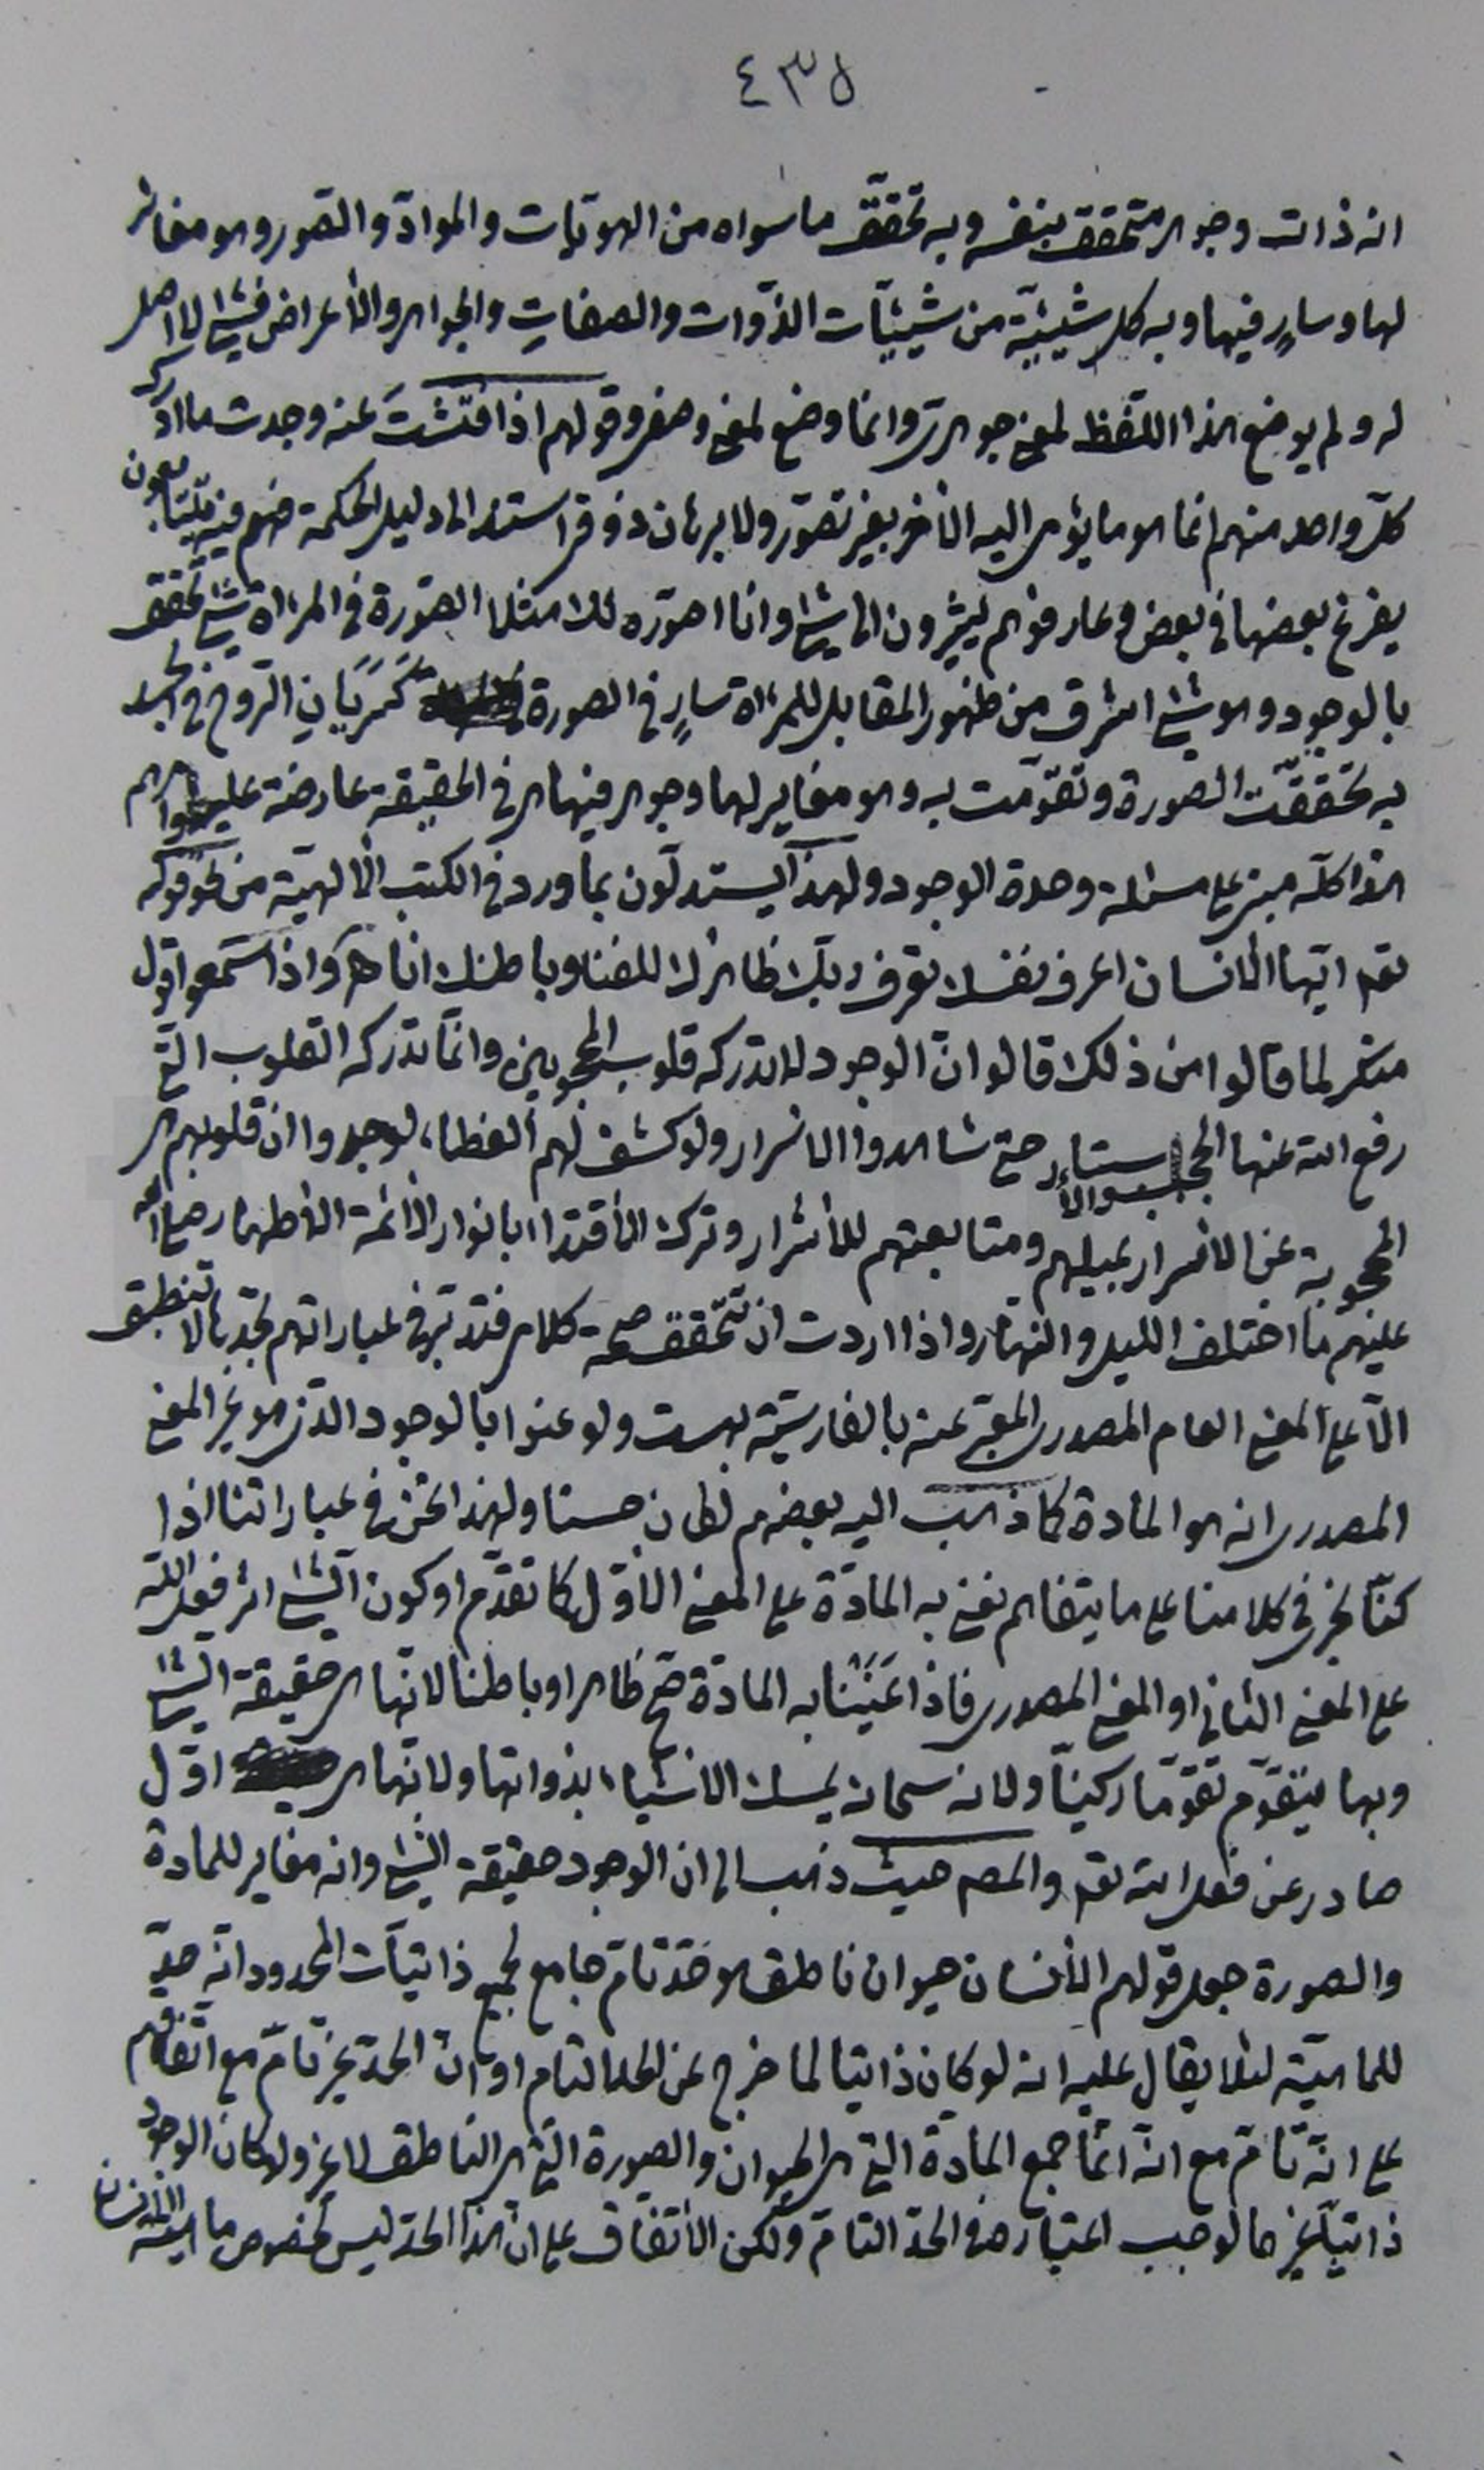 ٤٣٥
انه ذات وجوهر متحقق بنفسه وبه تحقّق ما سواه من الهويّات والموادّ والصّور وهو مغاير
لها وسارٍ فيها وبه كل شيئيّة من شيئيّات الذّوات والصفات والجواهر والأعراض فشئ لا اصل
له ولم يوضع هذا اللّفظ لمعنى جوهرى وانما وضع لمعنى وصفى وقولهم اذا فتّشتَ عنه وجدت ما ادركه
كلّ واحد منهم انما هو ما يؤمى اليه الأخر بغير تصوّر ولا برهان ذوقى استند الى دليل الحكمة فهم فيه يتّبعون
يفرغ بعضها فى بعض وعارفوهم يشيرون الى شئ وانا اصوّره لك مثلا الصّورة فى المرءاة شئ تحقق
بالوجود وهو شئ اشرق من ظهور المقابل للمرءاة سارٍ فى الصورة كسَرَيَانِ الرّوح فى الجسد
به تحقّقت الصورة وتقوّمت به وهو مغاير لها وجوهر فيها هى فى الحقيقة عارضة عليه
هذا كلّه مبنى على مسئلة وحدة الوجود ولهذا يستدلّون بما ورد فى الكتب الألهيّة من نحو قوله
تعم ايّها الانسان اعرف نفسك تعرف ربّك ظاهرك للفناء وباطنك انا واذا سمعوا قول
منكر لما قالوا من ذلك قالوا انّ الوجود لا تدركه قلوب المحجوبين وانّما تدركه القلوب التى
رفع الله عنها الحجب والأستار حتى شاهدوا الاسرار ولو كشف لهم الغطاء لوجدوا ان قلوبهم هى
المحجوبة عن الأسرار بميلهم ومتابعتهم للأشرار وترك الأقتداء بانوار الأئمة الأطهار صلى الله
عليهم ما اختلف الليل والنهار واذا اردت ان تتحقّق صحة كلامى فتدبّر فى عباراتهم تجدها لا تنطبق
الّا على المعنى العام المصدرى المعبّر عنه بالفارسيّة بهست ولو عنوا بالوجود الذى هو غير المعنى
المصدرى انه هو المادة كما ذهب اليه بعضهم لكان حسنا ولهذا نحن فى عباراتنا اذا
كنّا نجرى فى كلامنا على ما يتفاهم نعنى به المادّة على المعنى الأوّل كما تقدّم او كون الشئ اثر فعل الله
على المعنى الثانى او المعنى المصدرى فاذا عَنَيْنَا به المادّة صح ظاهرا وباطنا لانّها هى حقيقة الشئ
وبها يتقوّم تقوّما ركنيّا ولانه سبحانه يمسك الاشياء بذواتها ولانّها هى اوّل
صادر عن فعل الله تعم والمصم حيث ذهب الى ان الوجود حقيقة الشئ وانه مغاير للمادة
والصورة جعل قولهم الأنسان حيوان ناطق هو حدّ تامّ جامع لجميع ذاتيّات المحدود انّه حدّ
للماهيّة لئلا يقال عليه انه لو كان ذاتيا لما خرج عن الحد التام او انّ الحدّ غير تامّ مع اتّفاقهم
على انّه تامّ مع انّه انّما جمع المادّة التى هى الحيوان والصورة التى هى الناطق لا غير ولو كان الوجود
ذاتيّا غيرهما لوجب اعتباره فى الحدّ التامّ ولكن الأتّفاق على ان هذا الحدّ ليس لخصوص ماهيّة الأنسان